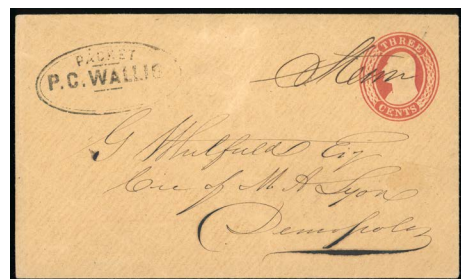 PACKET
P.C. WALLIS
Steam
THREE
CENTS
G Whilfield Esq
Care of M. A Lyon
Demopolis